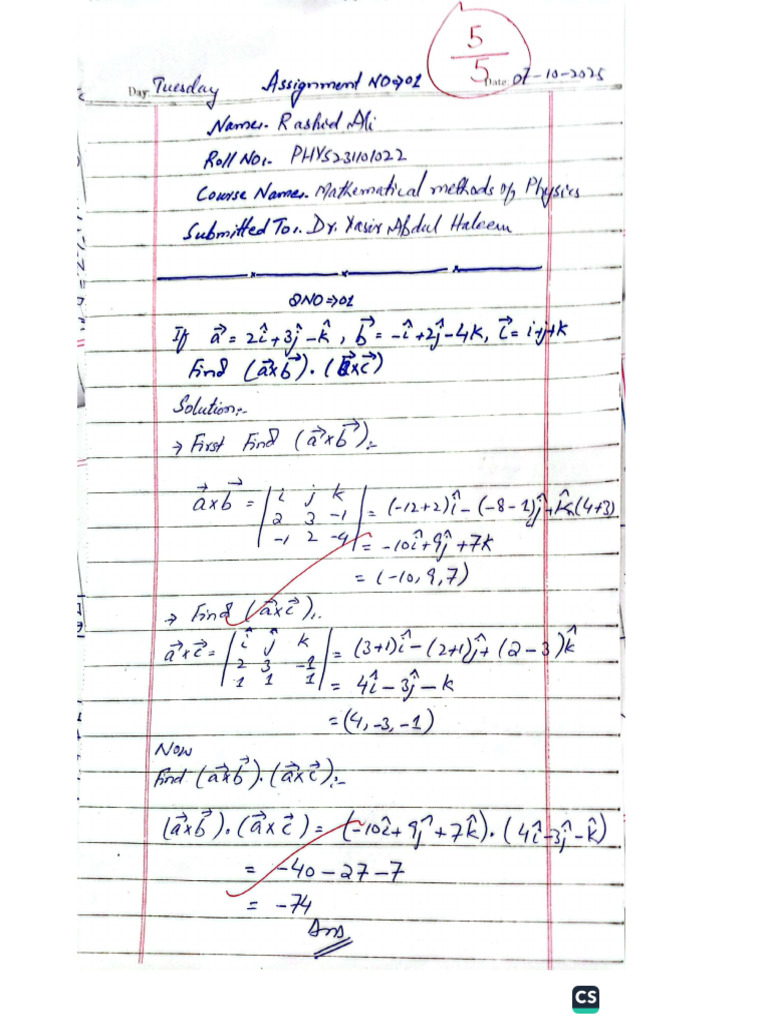 5
5
Day: Tuesday Assignment NO⇒01 Date: 07-10-2025
Name:- Rashid Ali
Roll No:- PHYS231101022
Course Name:- Mathematical methods of Physics
Submitted To:- Dr. Yasir Abdul Haleem
QNO⇒01
If a⃗ = 2î+3ĵ-k̂, b⃗ = -î+2ĵ-4k, c⃗ = i+j+k
Find (a⃗xb⃗).(a⃗xc⃗)
Solution:-
→ First Find (a⃗xb⃗):-
a⃗xb⃗ = | i j k | = (-12+2)î-(-8-1)ĵ+k̂(4+3)
| 2 3 -1 |
| -1 2 -4 | = -10î+9ĵ+7k
= (-10,9,7)
→ Find (a⃗xc⃗):.
a⃗xc⃗ = | î ĵ k | = (3+1)î-(2+1)ĵ+(2-3)k̂
| 2 3 -1 |
| 1 1 1 | = 4î-3ĵ-k
= (4,-3,-1)
Now
Find (a⃗xb⃗).(a⃗xc⃗):-
(a⃗xb⃗).(a⃗xc⃗) = (-10î+9ĵ+7k̂).(4î-3ĵ-k̂)
= -40-27-7
= -74
Ans
CS